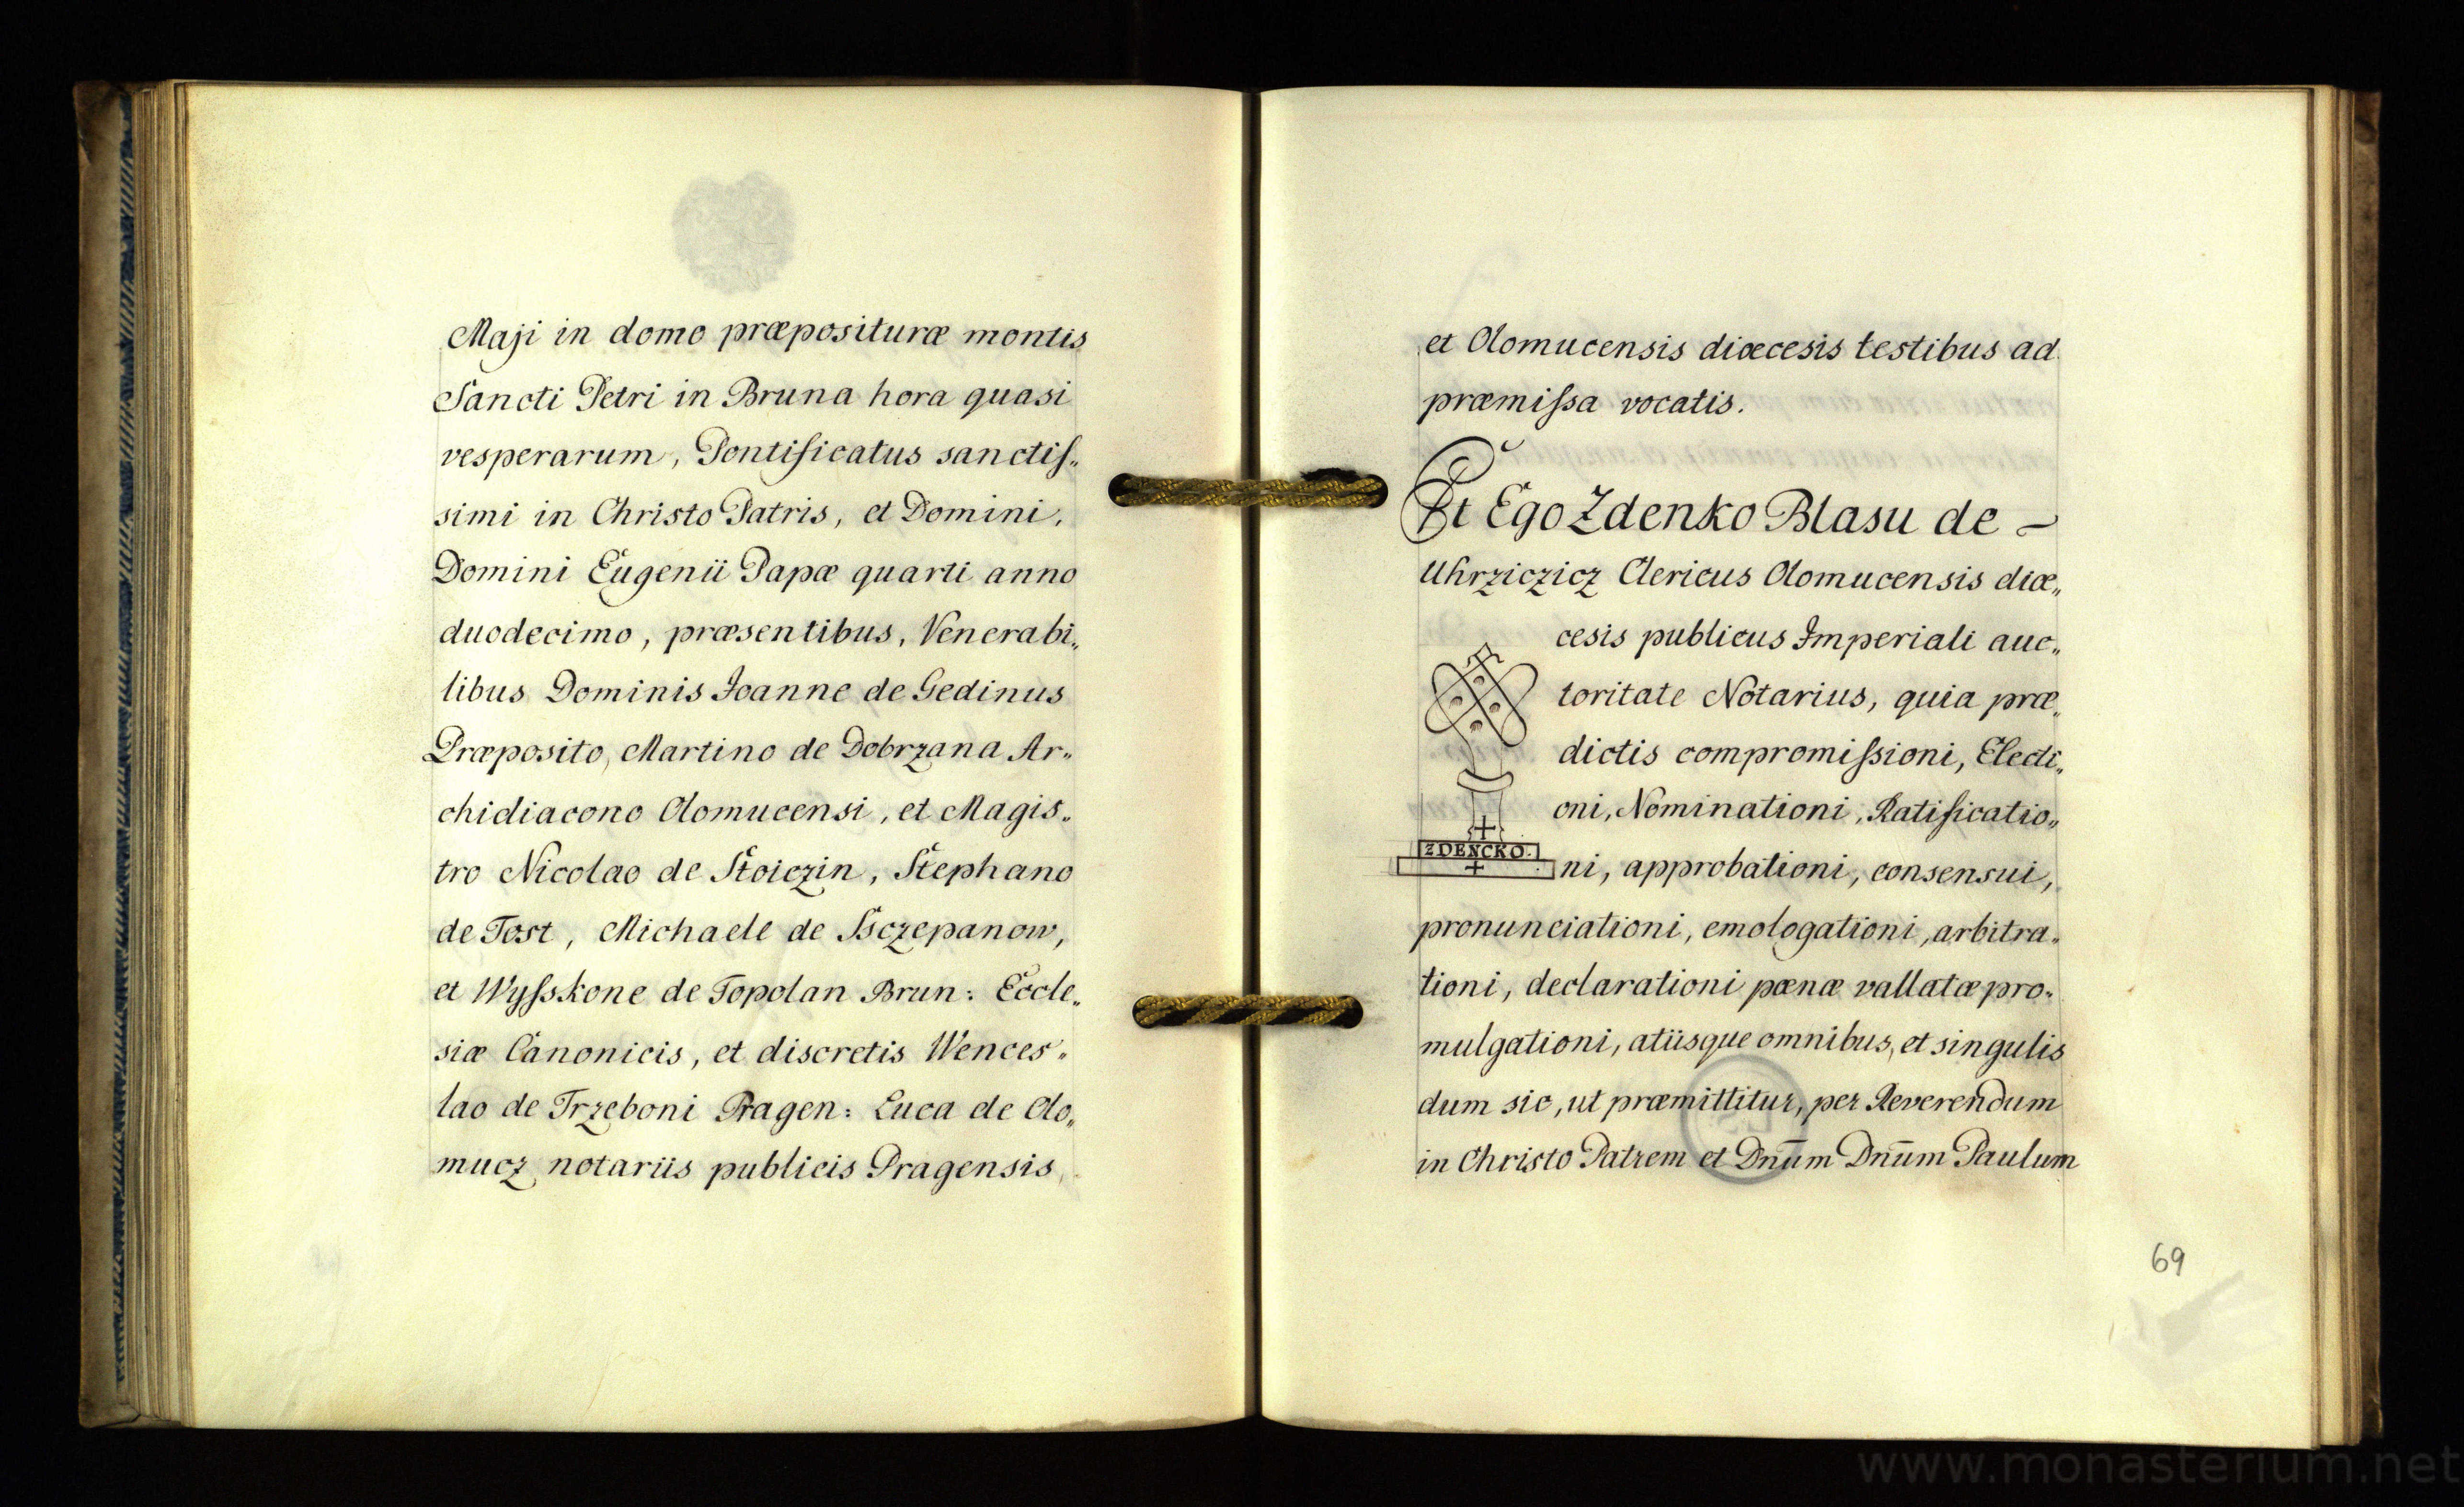 Maji in domo præposituræ montis
Sancti Petri in Bruna hora quasi
vesperarum, Pontificatus sanctiſ„
simi in Christo Patris, et Domini,
Domini Eugenii Papæ quarti anno
duodecimo, præsentibus, Venerabi„
libus Dominis Joanne de Gedinus
Præposito, Martino de Dobrzana Ar„
chidiacono Olomucensi, et Magis„
tro Nicolao de Stoiczin, Stephano
de Tost, Michaele de Ssczepanow,
et Wyſskone de Topolan Brun: Eccle„
siæ Canonicis, et discretis Wences„
lao de Trzeboni Pragen: Luca de Olo„
mucz notariis publicis Pragensis
et Olomucensis diœcesis testibus ad
præmiſsa vocatis.
Et Ego Zdenko Blasu de –
Uhrziczicz Clericus Olomucensis diœ„
cesis publicus Imperiali auc„
toritate Notarius, quia præ„
dictis compromiſsioni, Electi„
oni, Nominationi, Ratificatio„
ZDENCKO.
ni, approbationi, consensui,
pronunciationi, emologationi, arbitra„
tioni, declarationi pœnæ vallatæ pro„
mulgationi, atiisque omnibus, et singulis
dum sic, ut præmittitur, per Reverendum
in Christo Patrem et Dn̄um Dn̄um Paulum
69
www.monasterium.net